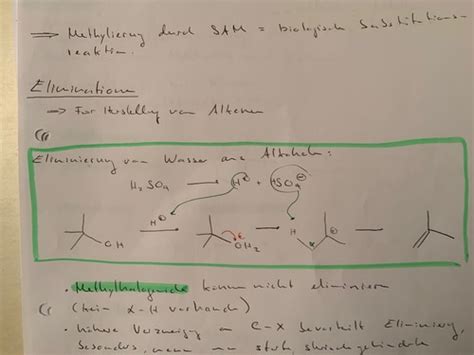 ⟹ Methylierung durch SAM = biologische Substitutions-
reaktion.
Eliminationen
→ Für Herstellung von Alkenen
Eliminierung von Wasser aus Alkoholen:
H₂SO₄ → H⊕ + HSO₄⊖
H⊕
OH → OH₂ → H ⊕ →
• Methylhalogenide können nicht eliminieren
(kein α-H vorhanden)
• höhere Verzweigung an C-X bevorteilt Eliminierung
besonders, wenn